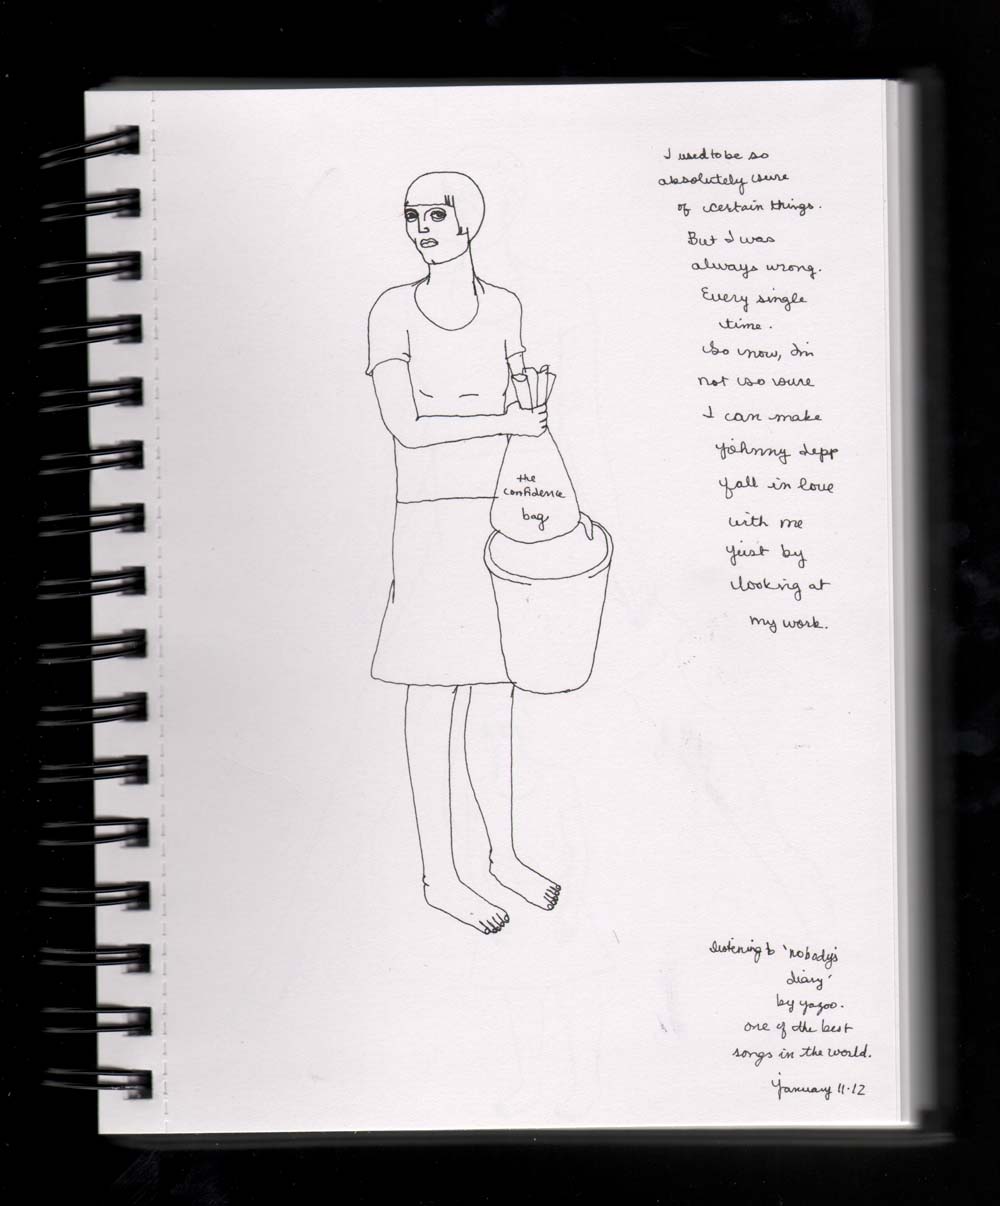 I used to be so
absolutely sure
of certain things.
But I was
always wrong.
Every single
time.
So now, I'm
not so sure
I can make
johnny depp
fall in love
with me
just by
looking at
my work.
the
confidence
bag
listening to 'nobody's
diary'
by yazoo.
one of the best
songs in the world.
january 11.12